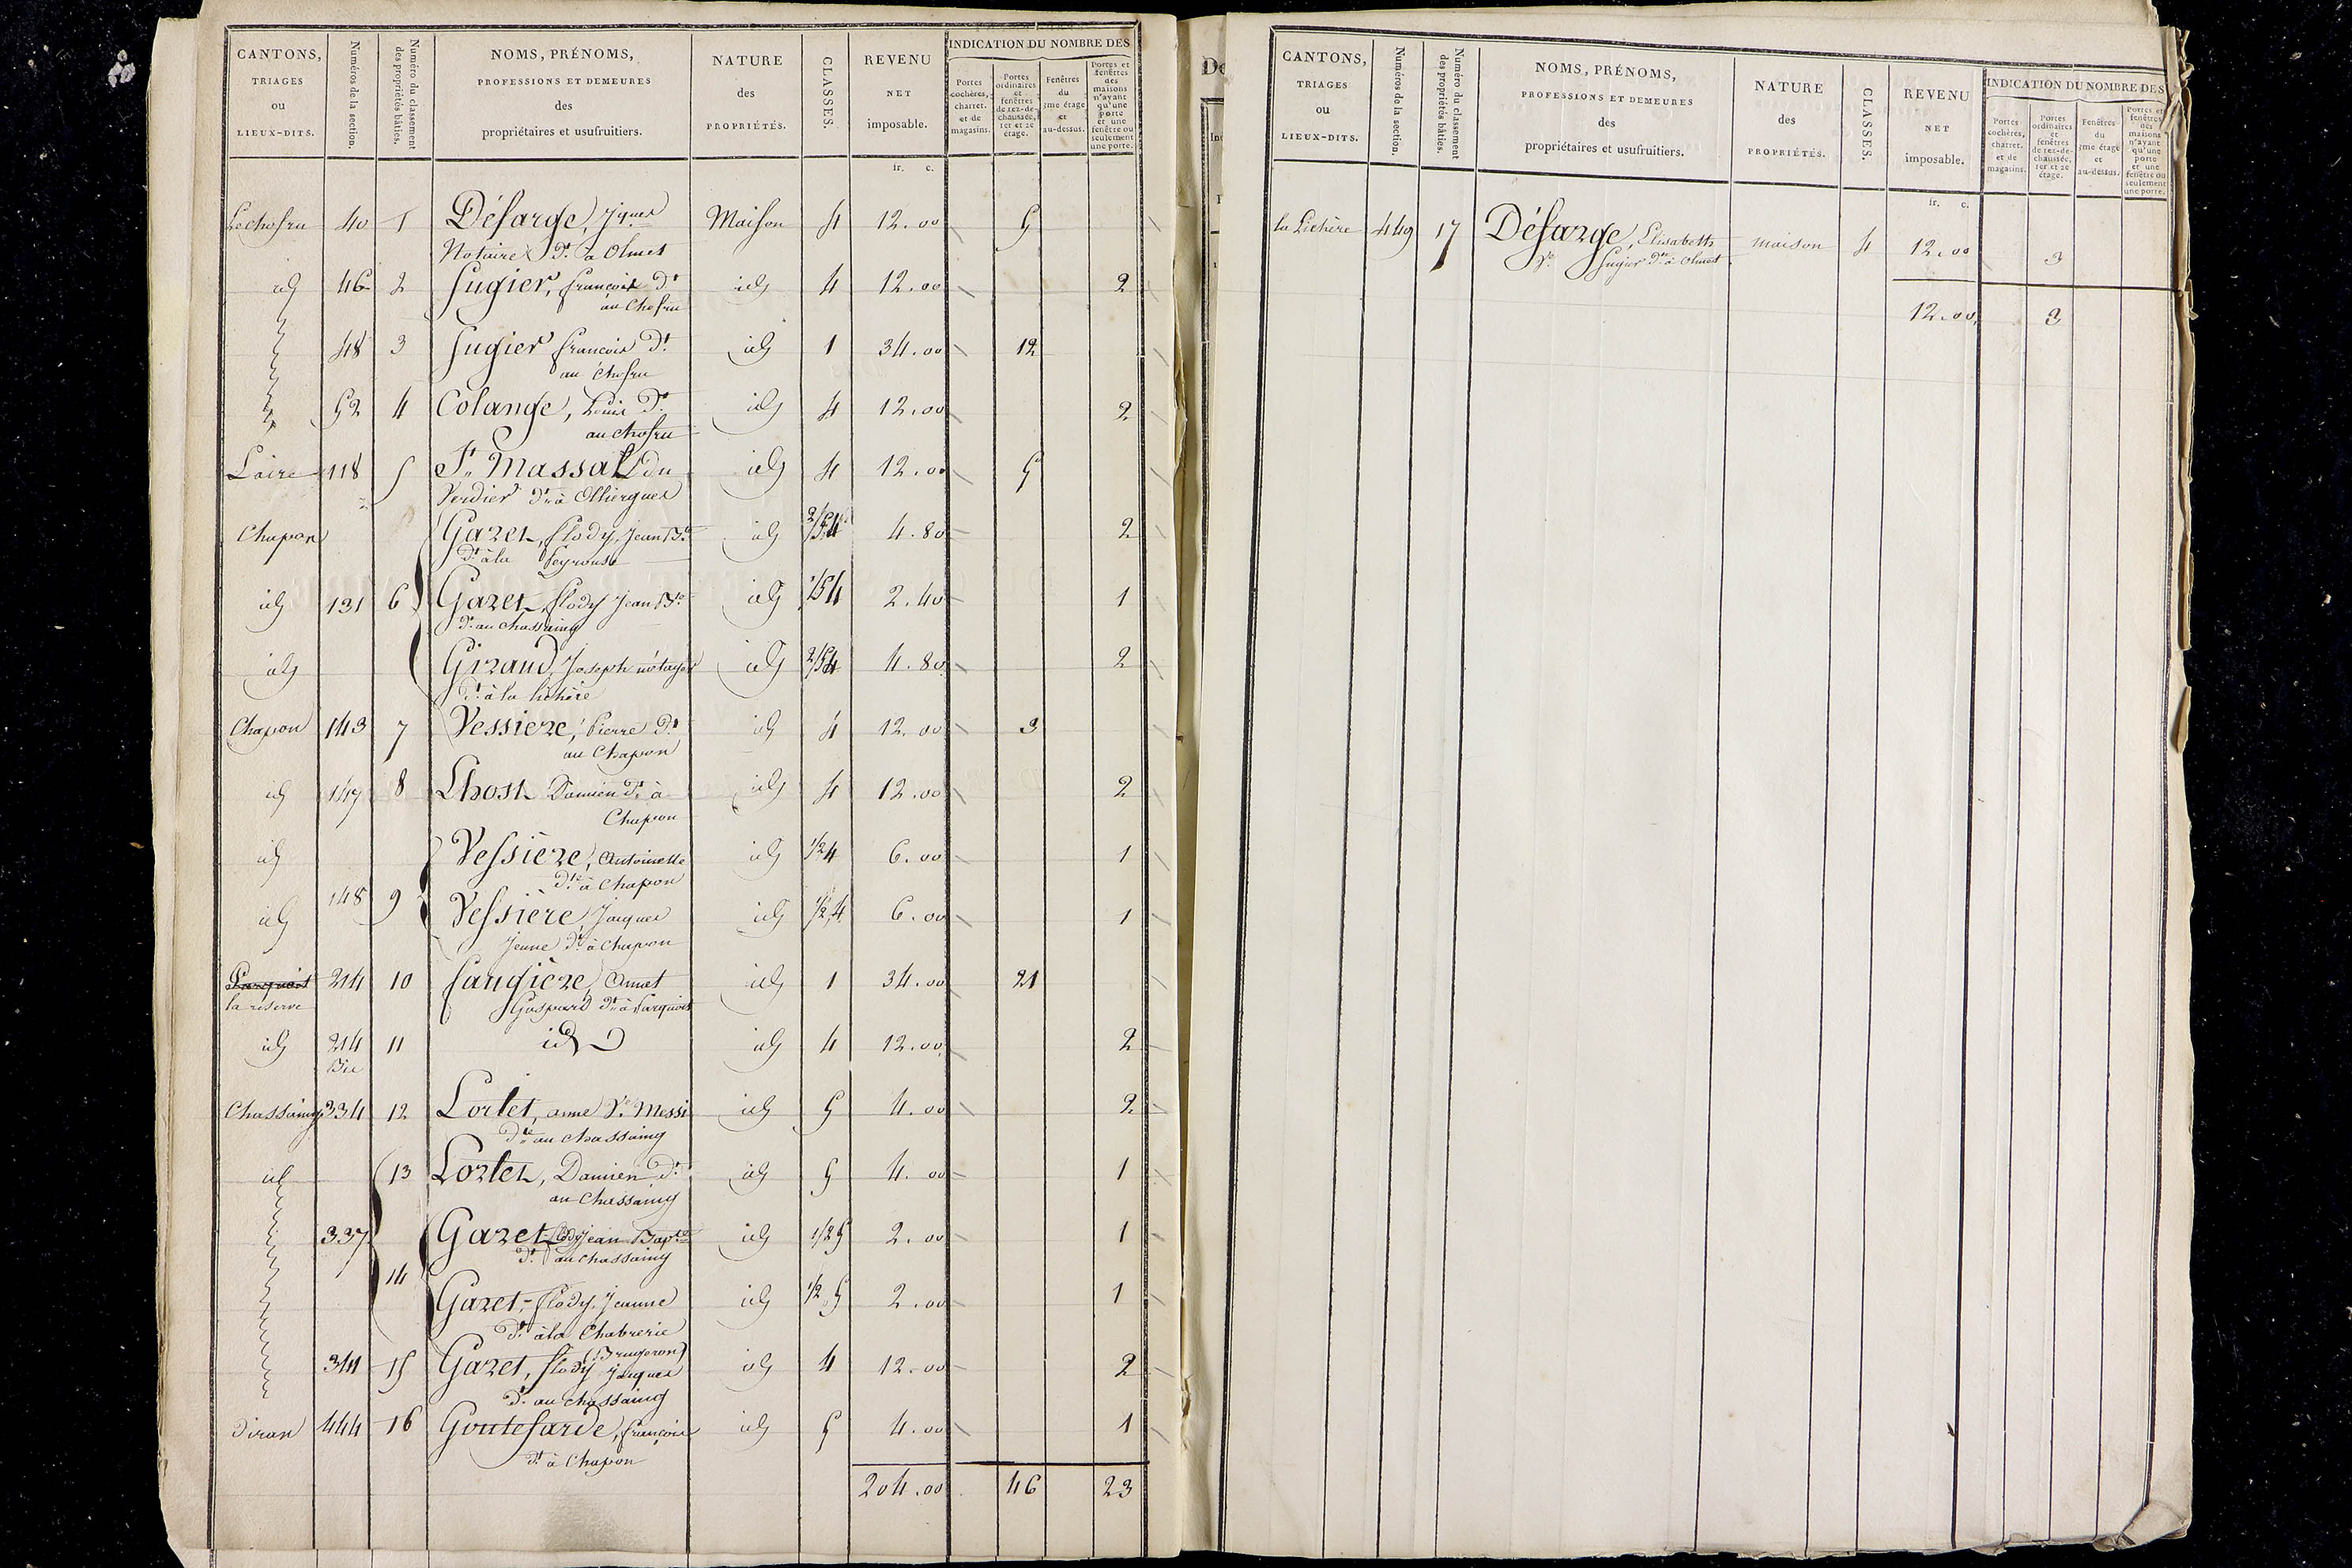 CANTONS, TRIAGES ou LIEUX-DITS.
Numéros de la section.
Numéro du classement des propriétés bâties.
NOMS, PRÉNOMS, PROFESSIONS ET DEMEURES des propriétaires et usufruitiers.
NATURE des PROPRIÉTÉS.
CLASSES.
REVENU NET imposable.
INDICATION DU NOMBRE DES
Portes cochères, charret. et de magasins.
Portes ordinaires et fenêtres de rez-de-chaussée, 1er et 2e étage.
Fenêtres du 3me étage et au-dessus.
Portes et fenêtres des maisons n'ayant qu'une porte et une fenêtre ou seulement une porte.
fr. c.
40 1 Défarge, Notaire dt à Olmet Maison 4 12.00 5
id 46 2 Sugier, françois dt au Chofru id 4 12.00 2
48 3 Sugier françois dt au Chofru id 1 34.00 12
52 4 Colange, Louis dt au Chofru id 4 12.00 2
Loire 118 5 St Massal du Verdier dt à Olliergues id 4 12.00 5
Chapon Gazet, flody, Jean Bte dt à la Peyrouse id 2/5 4 4.80 2
id 131 6 Gazet, flody Jean Bte dt au Chassaing id 1/5 4 2.40 1
id Giraud, Joseph métayer dt à la lichère id 2/5 4 4.80 2
Chapon 143 7 Vessiere, Pierre dt au Chapon id 4 12.00 3
id 147 8 Lhost Damien dt à Chapon id 4 12.00 2
id Vessière, Antoinette dte à Chapon id 1/2 4 6.00 1
id 148 9 Vessière, Jacques Jeune dt à Chapon id 1/2 4 6.00 1
la réserve 214 10 faugière, Annet Gaspard dt à id 1 34.00 21
id 214 Bis 11 id id 4 12.00 2
Chassaing 334 12 Lortet, anne Ve Messi dte au Chassaing id 5 4.00 2
id 13 Lortet, Damien dt au Chassaing id 5 4.00 1
337 Gazet flody Jean Bapte dt au Chassaing id 1/2 5 2.00 1
14 Gazet, flody, Jeanne dt à la Chabrerie id 1/2 5 2.00 1
341 15 Gazet, flody (Brugeron) Jacques dt au Chassaing id 4 12.00 2
Diran 444 16 Goutefarde, françois dt à Chapon id 5 4.00 1
204.00 46 23
CANTONS, TRIAGES ou LIEUX-DITS.
Numéros de la section.
Numéro du classement des propriétés bâties.
NOMS, PRÉNOMS, PROFESSIONS ET DEMEURES des propriétaires et usufruitiers.
NATURE des PROPRIÉTÉS.
CLASSES.
REVENU NET imposable.
INDICATION DU NOMBRE DES
Portes cochères, charret. et de magasins.
Portes ordinaires et fenêtres de rez-de-chaussée, 1er et 2e étage.
Fenêtres du 3me étage et au-dessus.
Portes et fenêtres des maisons n'ayant qu'une porte et une fenêtre ou seulement une porte.
fr. c.
la Lichère 449 17 Défarge, Elisabeth Ve Sugier dte à Olmet maison 4 12.00 3
12.00 3